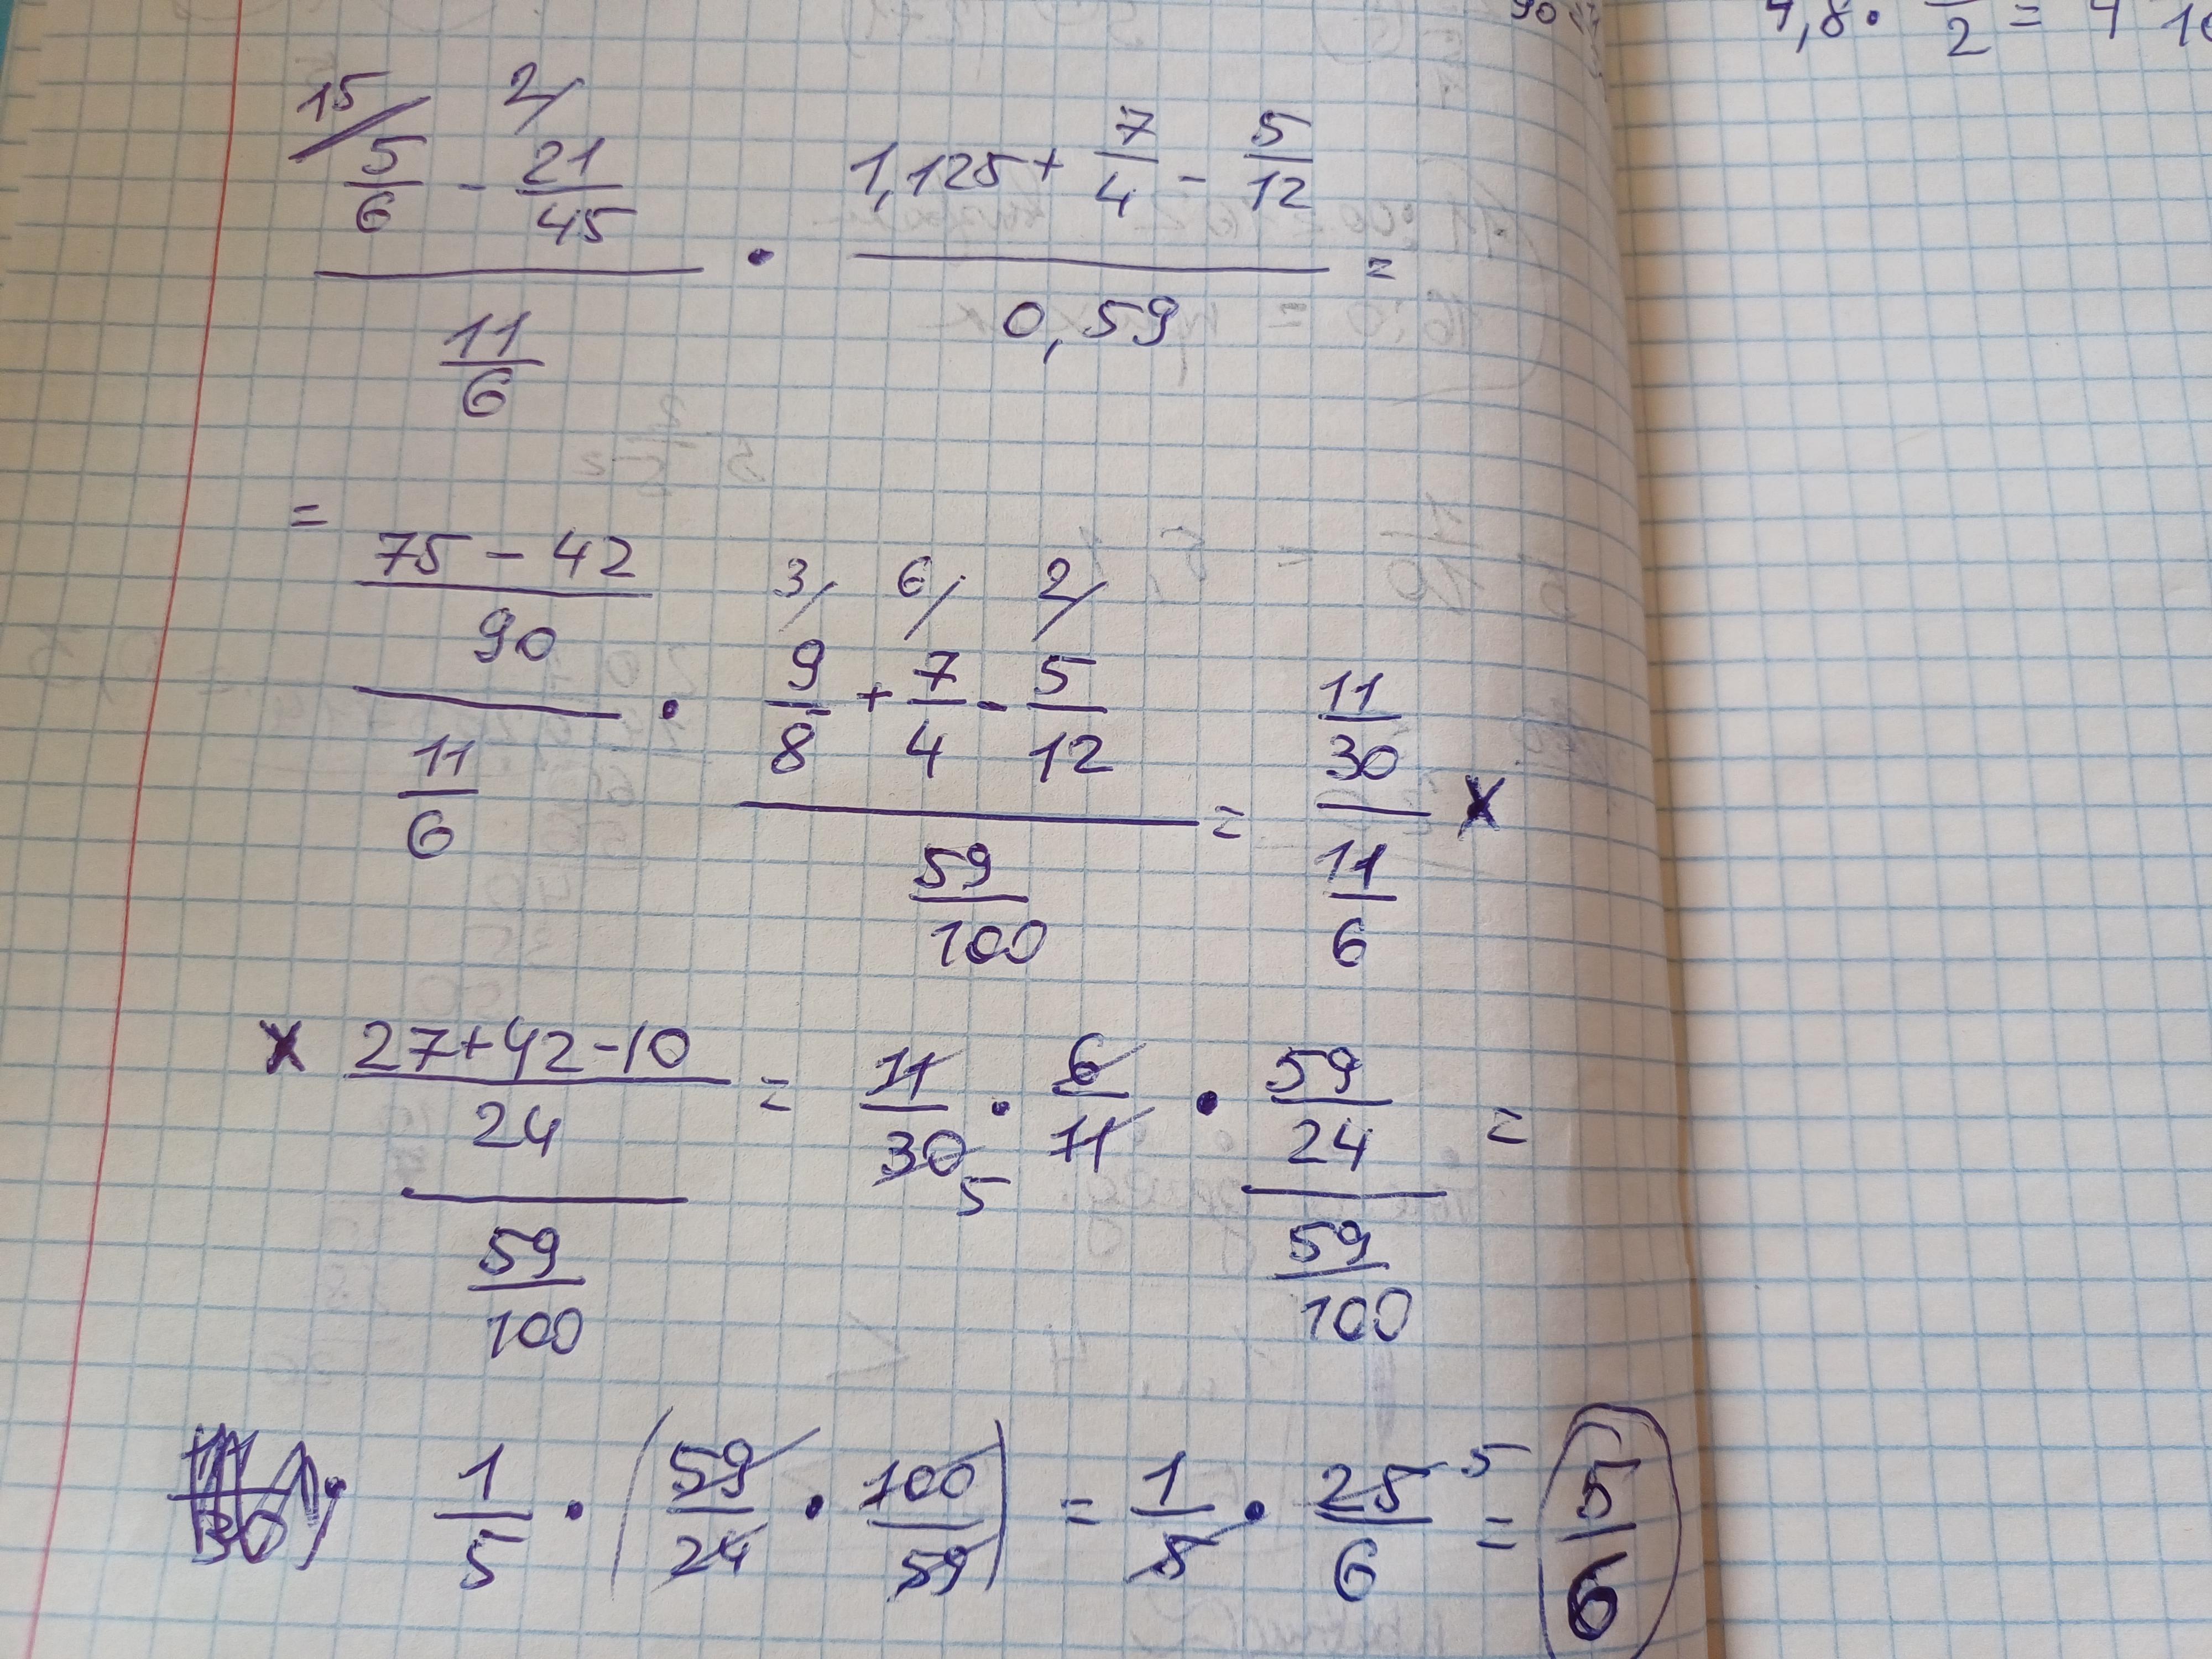 4,8 · /2 = 4
15/ 5/6 - 2/ 21/45
11/6
· 1,125 + 7/4 - 5/12
0,59
=
= 75 - 42
90
11/6
· 3/ 9/8 + 6/ 7/4 - 2/ 5/12
59/100
= 11/30
11/6
×
× 27+42-10
24
59/100
= 11/30 5 · 6/11 · 59/24
59/100
=
1/5 · (59/24 · 100/59) = 1/5 · 25/6 5 = 5/6